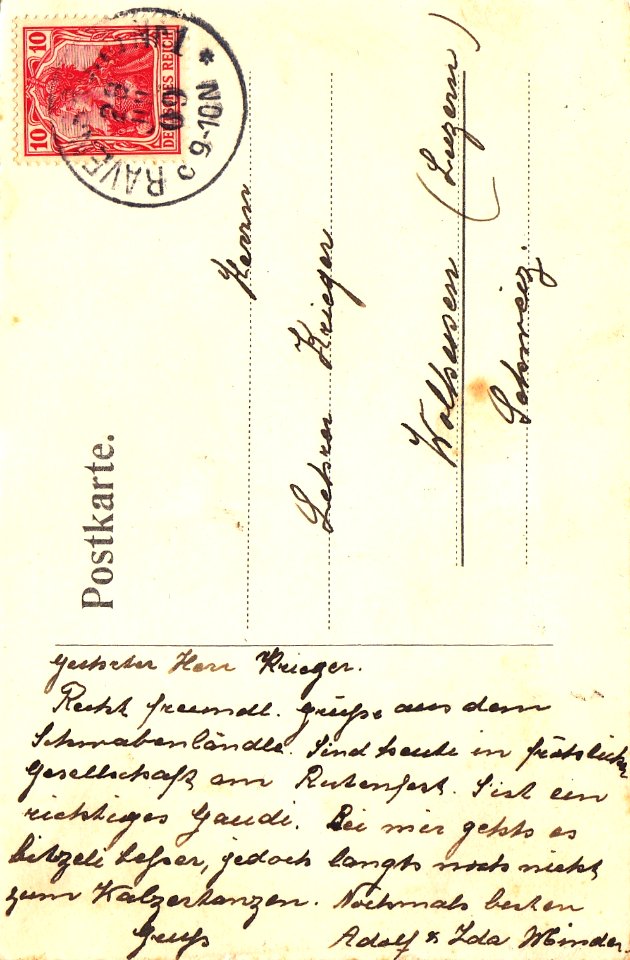 10 10
DEUTSCHES REICH
RAVENSBURG
23
09
9-10N
Postkarte.
Herrn
Lehrer Krieger
Wolhusen (Luzern)
Schweiz.
Geehrter Herr Krieger.
Recht freundl. Grüsse aus dem
Schwabenländle. Sind heute in fröhlicher
Gesellschaft am Rutenfest. S'ist ein
richtiges Gaudi. Bei mir gehts es
bitzeli besser, jedoch langts noch nicht
zum Walzertanzen. Nochmals besten
Gruss
Adolf & Ida Minder.